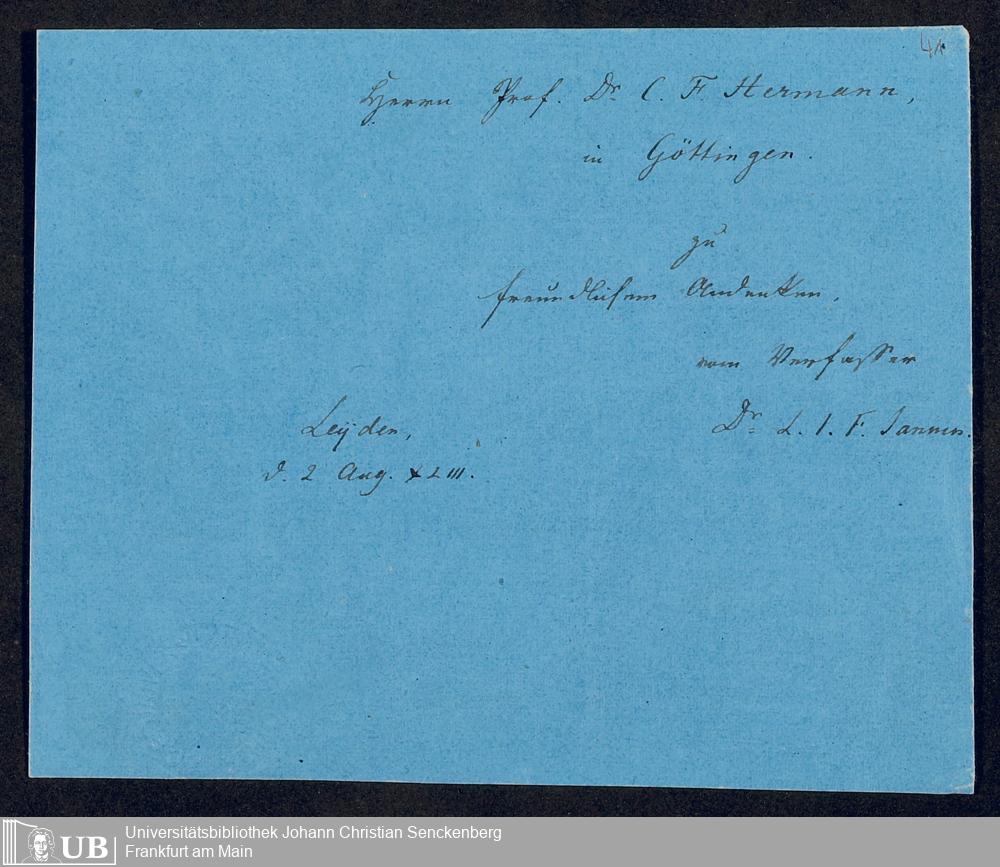 41
Herrn Prof. Dr. C. F. Hermann,
in Göttingen.
zu
freundlichem Andenken,
vom Verfasser
Dr. L. I. F. Janssen.
Leÿden,
d. 2 Aug. XLIII.
UB
Universitätsbibliothek Johann Christian Senckenberg
Frankfurt am Main